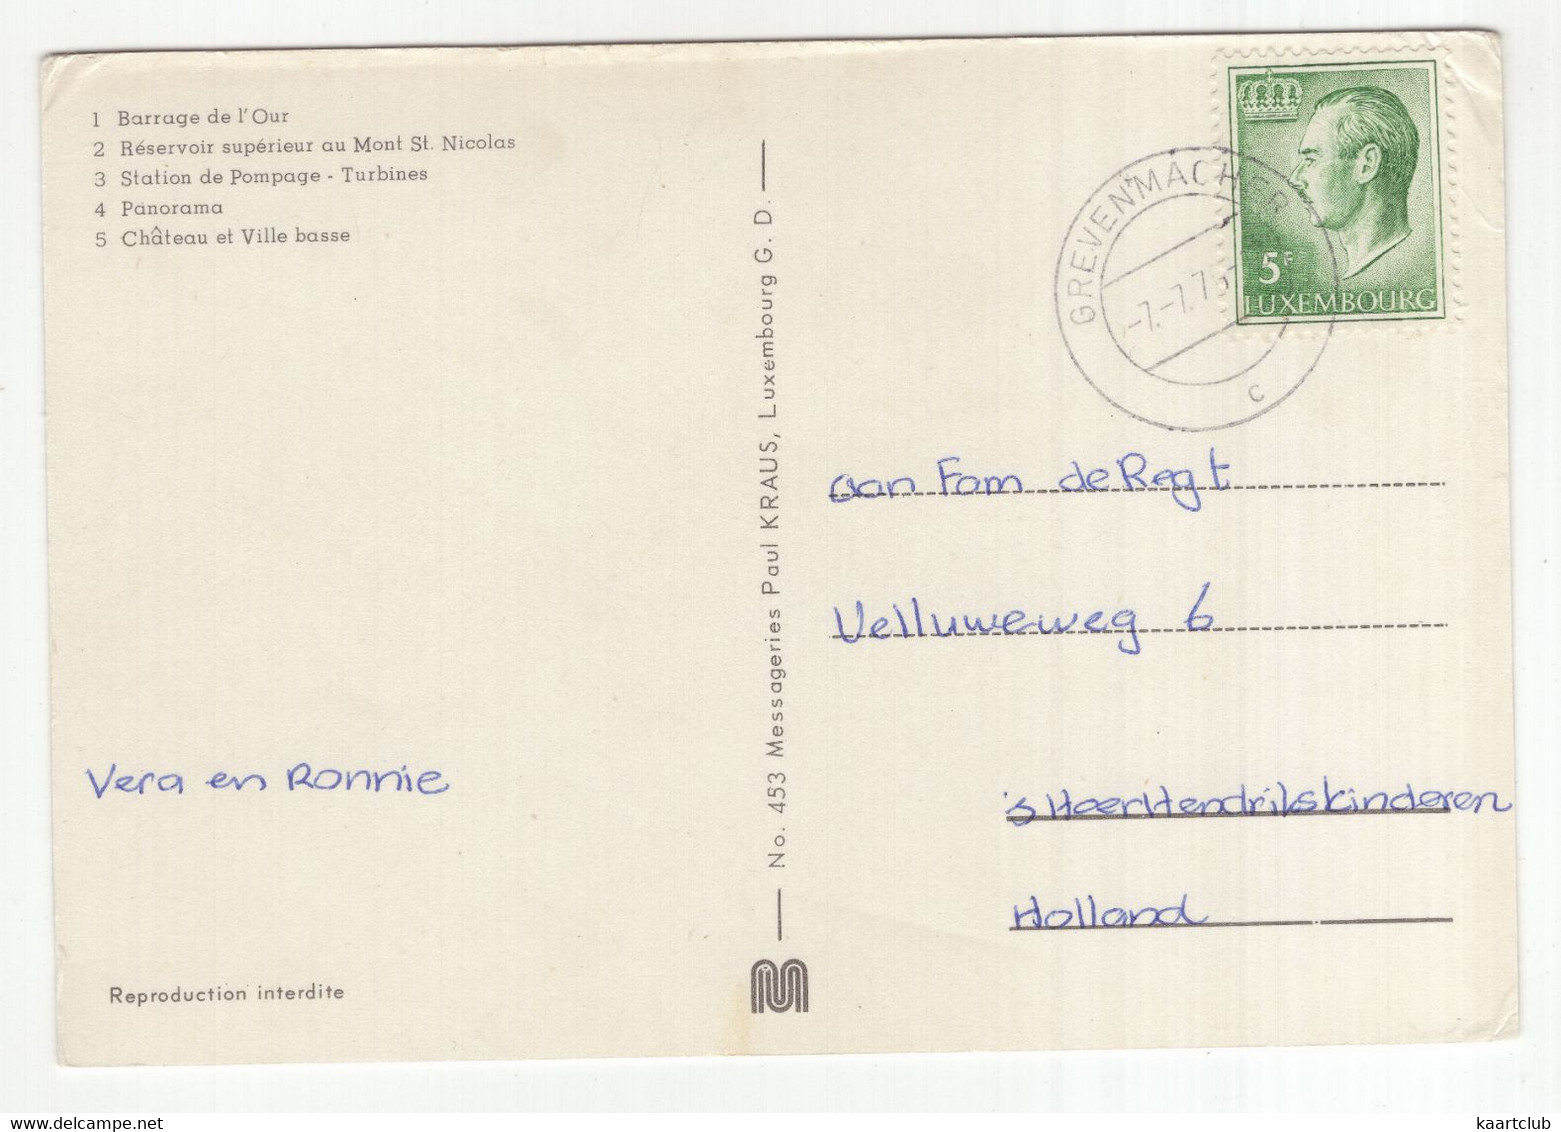 1 Barrage de l'Our
2 Réservoir supérieur au Mont St. Nicolas
3 Station de Pompage - Turbines
4 Panorama
5 Château et Ville basse
Vera en Ronnie
Reproduction interdite
No. 453 Messageries Paul KRAUS, Luxembourg G. D.
GREVENMACHER
-7.-7.75
c
5F
LUXEMBOURG
aan Fam de Regt
Velluweweg 6
's HeerHendrikskinderen
Holland
kaartclub